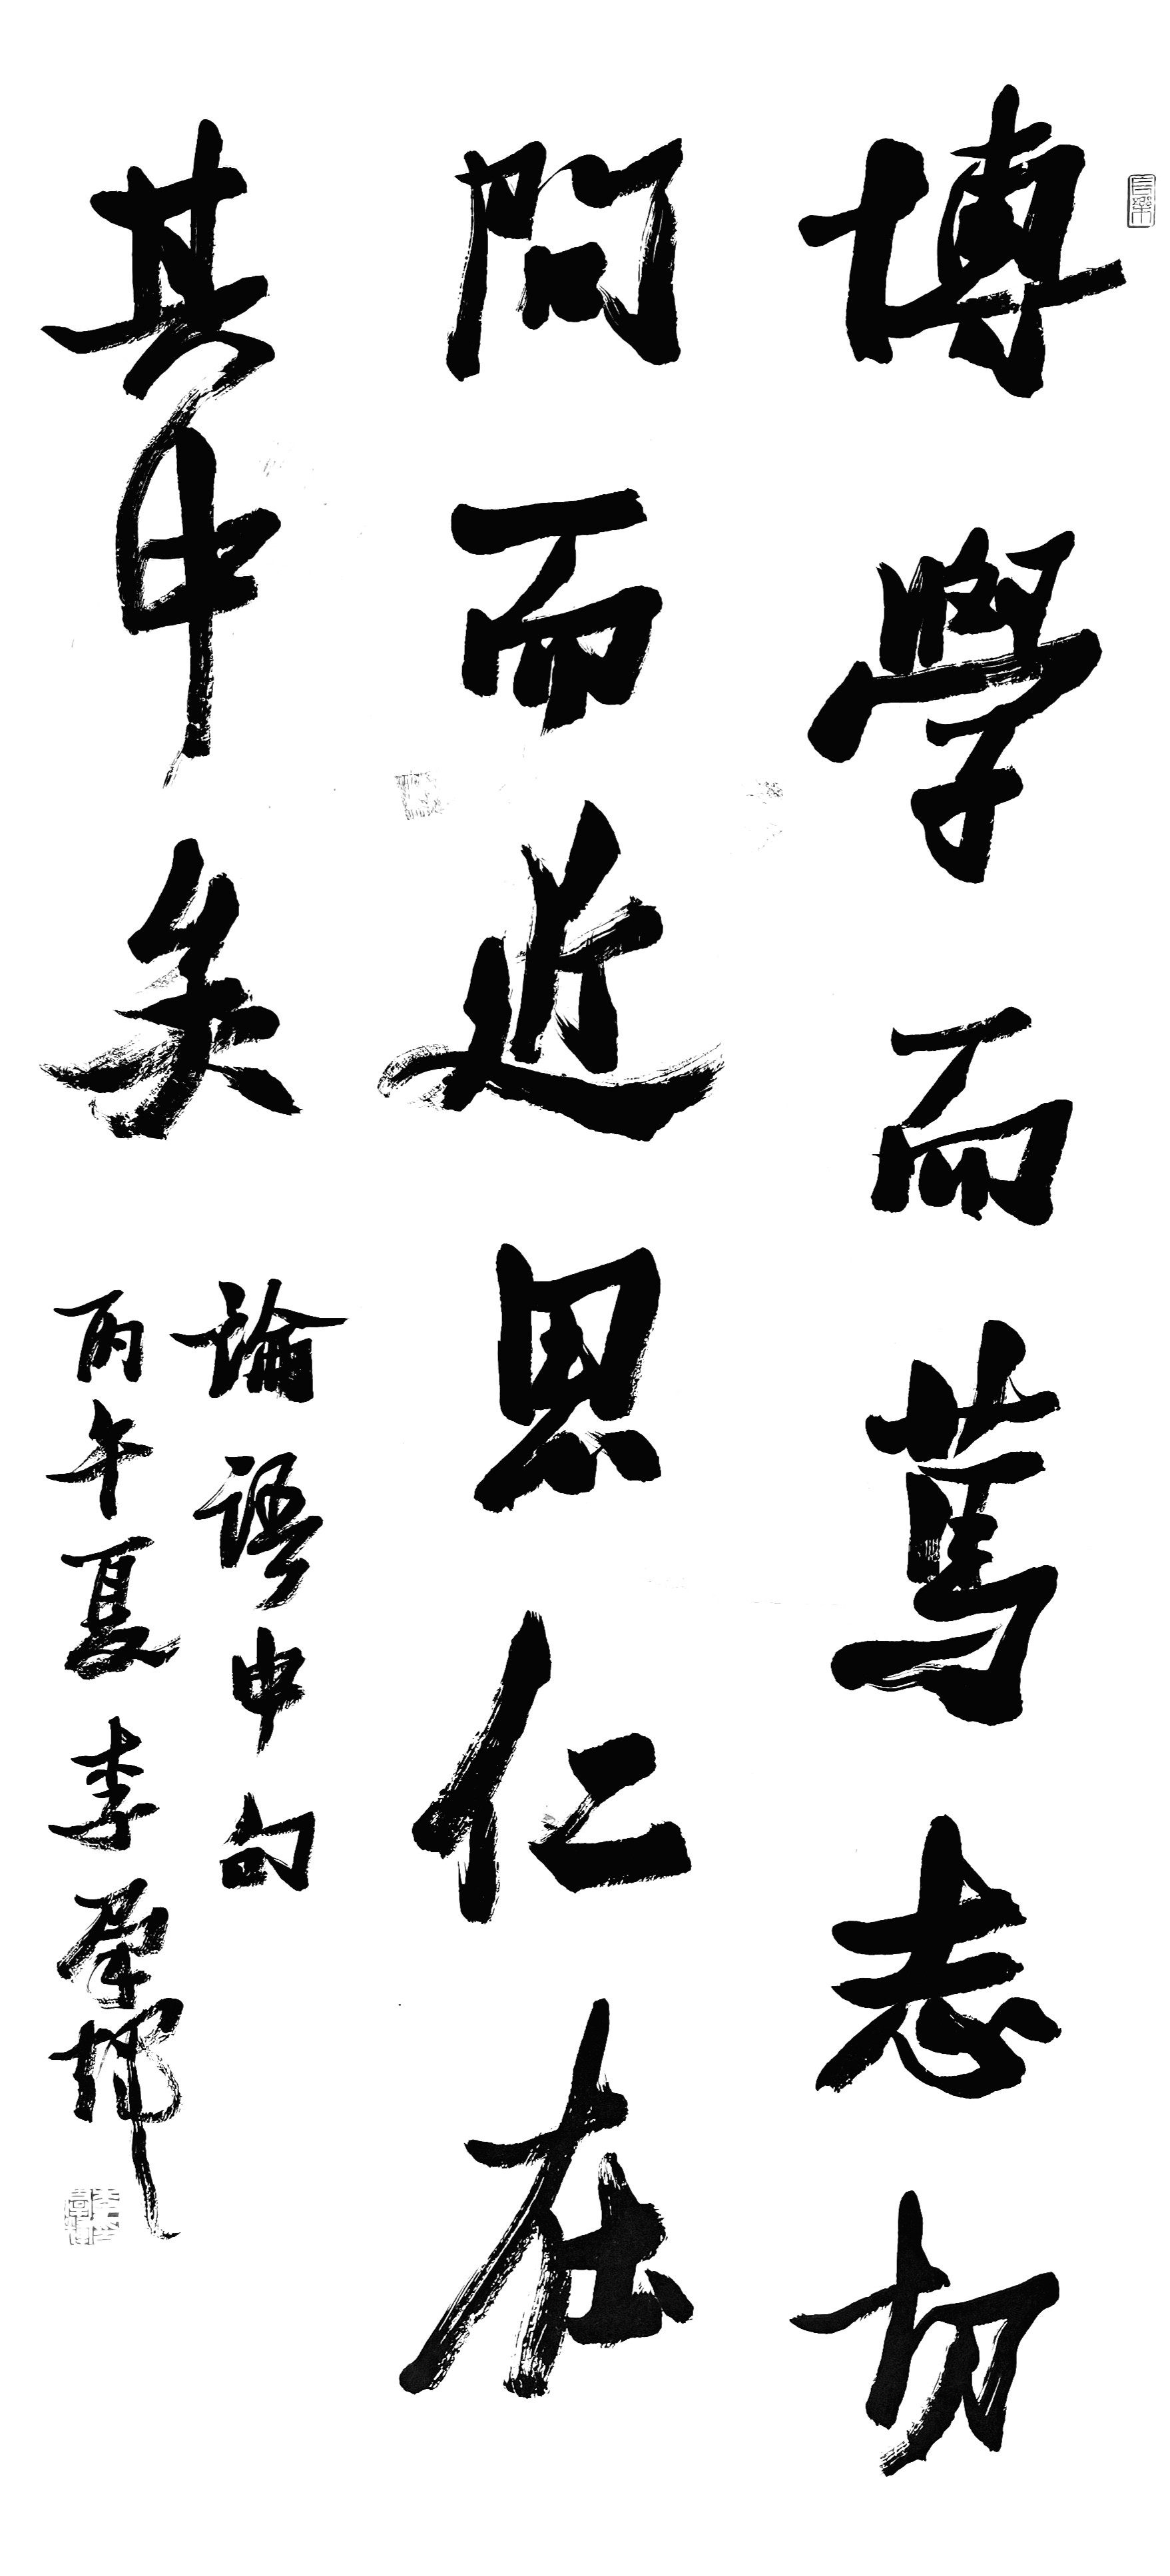 博學而篤志切
問而近思仁在
其中矣
論語中句
丙午夏李